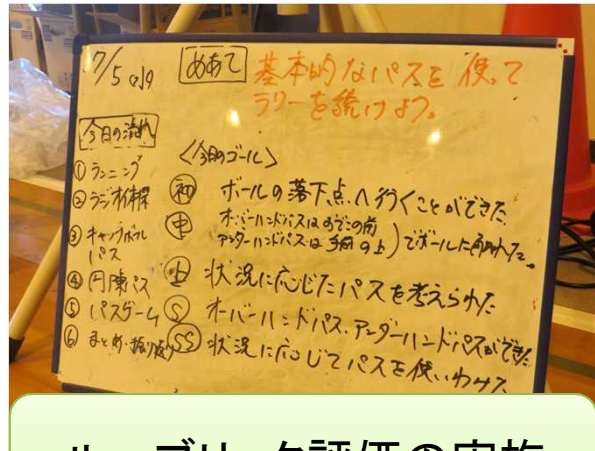 7/5
めあて 基本的なパスを使って
ラリーを続けよう。
今日の流れ
① ランニング
② ラジオ体操
③ キャッチボール
パス
④ 円陣パス
⑤ パスゲーム
⑥ まとめ・振り返り
〈今日のゴール〉
初 ボールの落下点へ行くことができた
中 オーバーハンドパスはおでこの前
アンダーハンドパスは手首の上)でボールに触れた。
上 状況に応じたパスを考えられた
S オーバーハンドパス、アンダーハンドパスができた
SS 状況に応じてパスを使いわけた
ルーブリック評価の実施